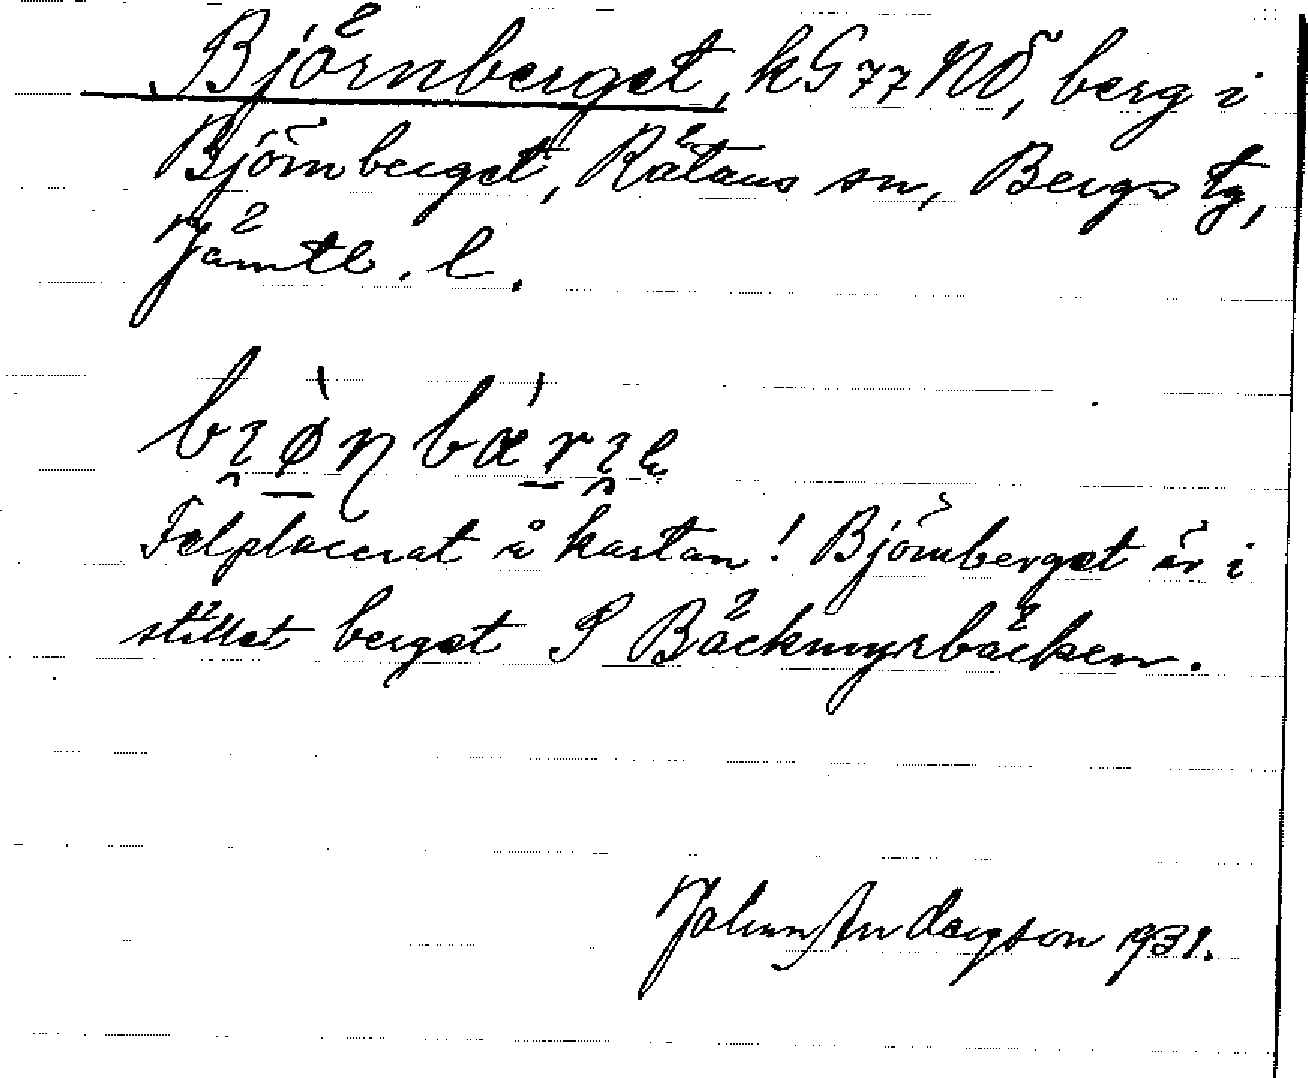 Björnberget, kG77NÖ, berg i
Björnberget, Rätans sn, Bergs tg,
Jämtl. l.
Felplacerat å kartan! Björnberget är i
stället berget S Bäckmyrbäcken.
Johan Anderson 1931.